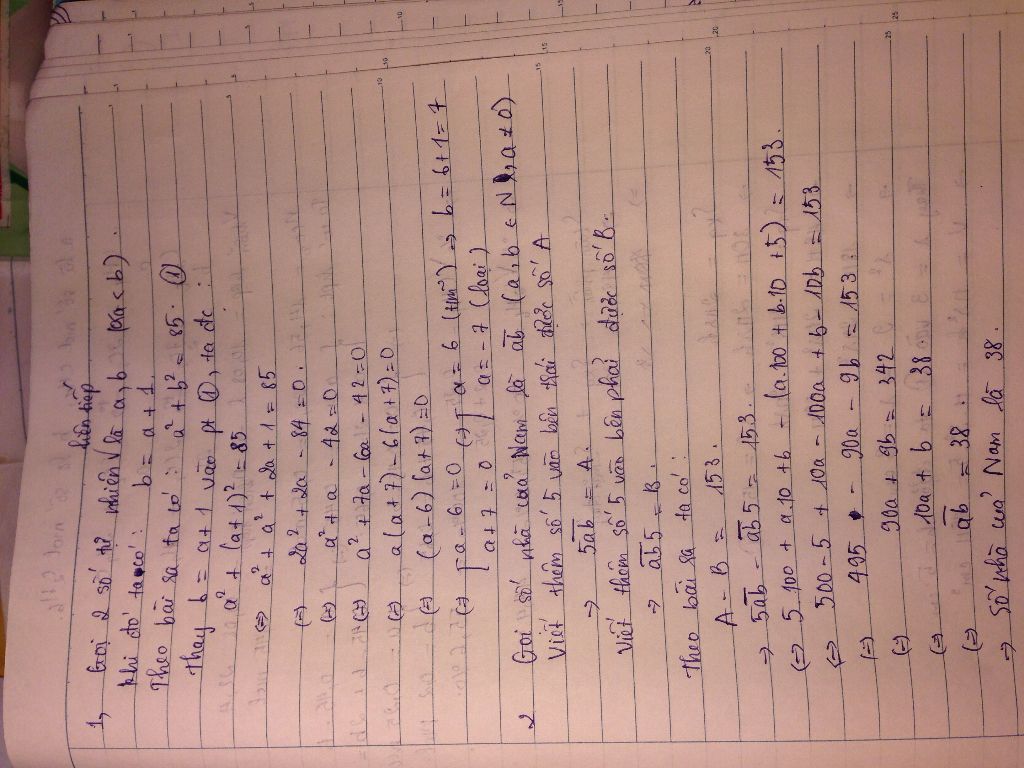 1, Gọi 2 số tự nhiên liên tiếp là a, b (a < b).
khi đó ta có: b = a + 1
Theo bài ra ta có a² + b² = 85. ①
Thay b = a + 1 vào pt ①, ta đc :
a² + (a+1)² = 85
⇔ a² + a² + 2a + 1 = 85
⇔ 2a² + 2a - 84 = 0.
⇔ a² + a - 42 = 0
⇔ a² + 7a - 6a - 42 = 0
⇔ a(a+7) - 6(a+7) = 0
⇔ (a-6)(a+7) = 0
⇔ [ a - 6 = 0 ⇔ [ a = 6 (tm) ⇒ b = 6+1 = 7
a + 7 = 0 a = -7 (loại)
2 Gọi số nhà của Nam là ab (a, b ∈ N, a ≠ 0)
Viết thêm số 5 vào bên trái được số A
⇒ 5ab = A.
viết thêm số 5 vào bên phải được số B.
⇒ ab5 = B.
Theo bài ra ta có:
A - B = 153.
⇒ 5ab - ab5 = 153.
⇔ 5.100 + a.10 + b - (a.100 + b.10 + 5) = 153.
⇔ 500 - 5 + 10a - 100a + b - 10b = 153
⇔ 495 - 90a - 9b = 153
⇔ 90a + 9b = 342
⇔ 10a + b = 38.
⇔ ab = 38
⇒ số nhà của Nam là 38.